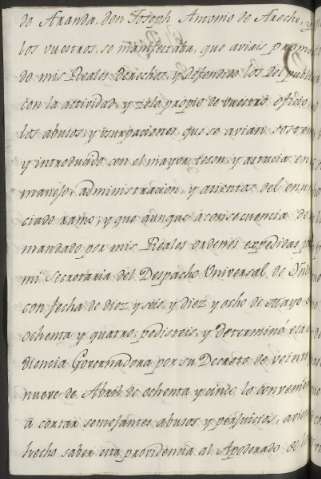 de Aranda, don Joseph Antonio de Areche, y
los vuestros, se manifestava, que aviais
de mis Reales Derechos, y defensivo los del
con la actividad, y zelo propio de vuestro oficio,
los abusos, y usurpaciones, que se avian
y introducido con el mayor teson, y astucia en
manejo, administracion, y asientos del enun
ciado ramo; y que aunque a consecuencia de
mandado por mis Reales ordenes expedidas por
mi Secretaria del Despacho Universal de
con fecha de diez, y seis, y diez, y ocho de Mayo
ochenta y quatro, pedisteis, y determinó
diencia Governadora por su Decreto de veinte
nueve de Abril de ochenta y cinco, lo conveniente
a cortar semejantes abusos, y perjuicios,
hecho saber esta providencia al Apoderado